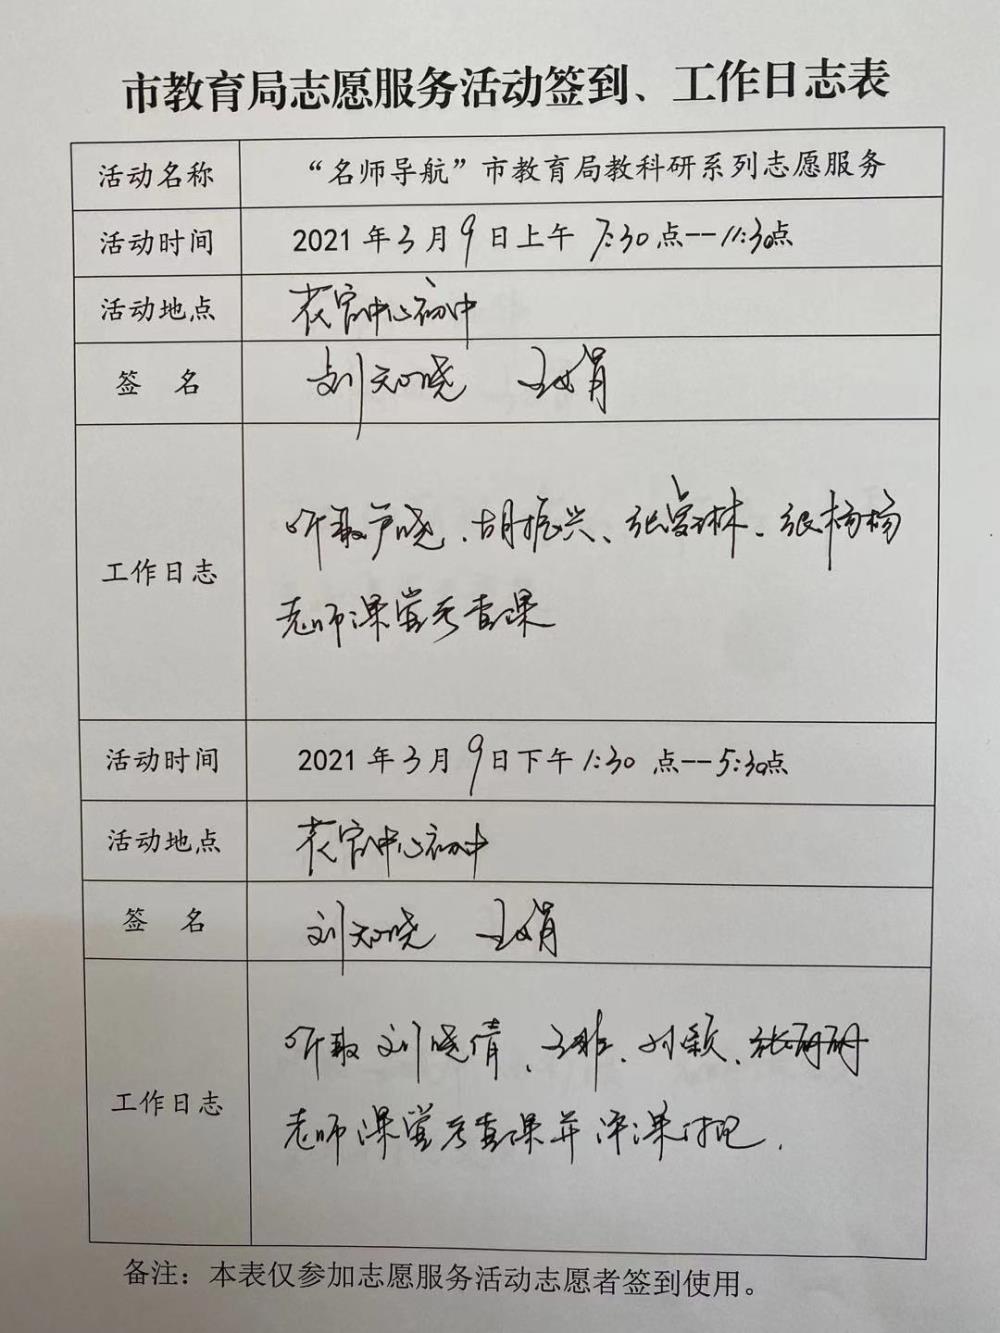 市教育局志愿服务活动签到、工作日志表
活动名称 “名师导航”市教育局教科研系列志愿服务
活动时间 2021年3月9日上午7:30点--11:30点
活动地点 花官中心初中
签 名 刘知晓 王娟
听取芦晓、胡振兴、张富琳、张杨杨
工作日志
老师课堂秀查课
活动时间 2021年3月9日下午1:30点--5:30点
活动地点 花官中心初中
签 名 刘知晓 王娟
听取刘晓倩、王非、刘颖、张丽丽
工作日志
老师课堂秀查课并评课
备注：本表仅参加志愿服务活动志愿者签到使用。